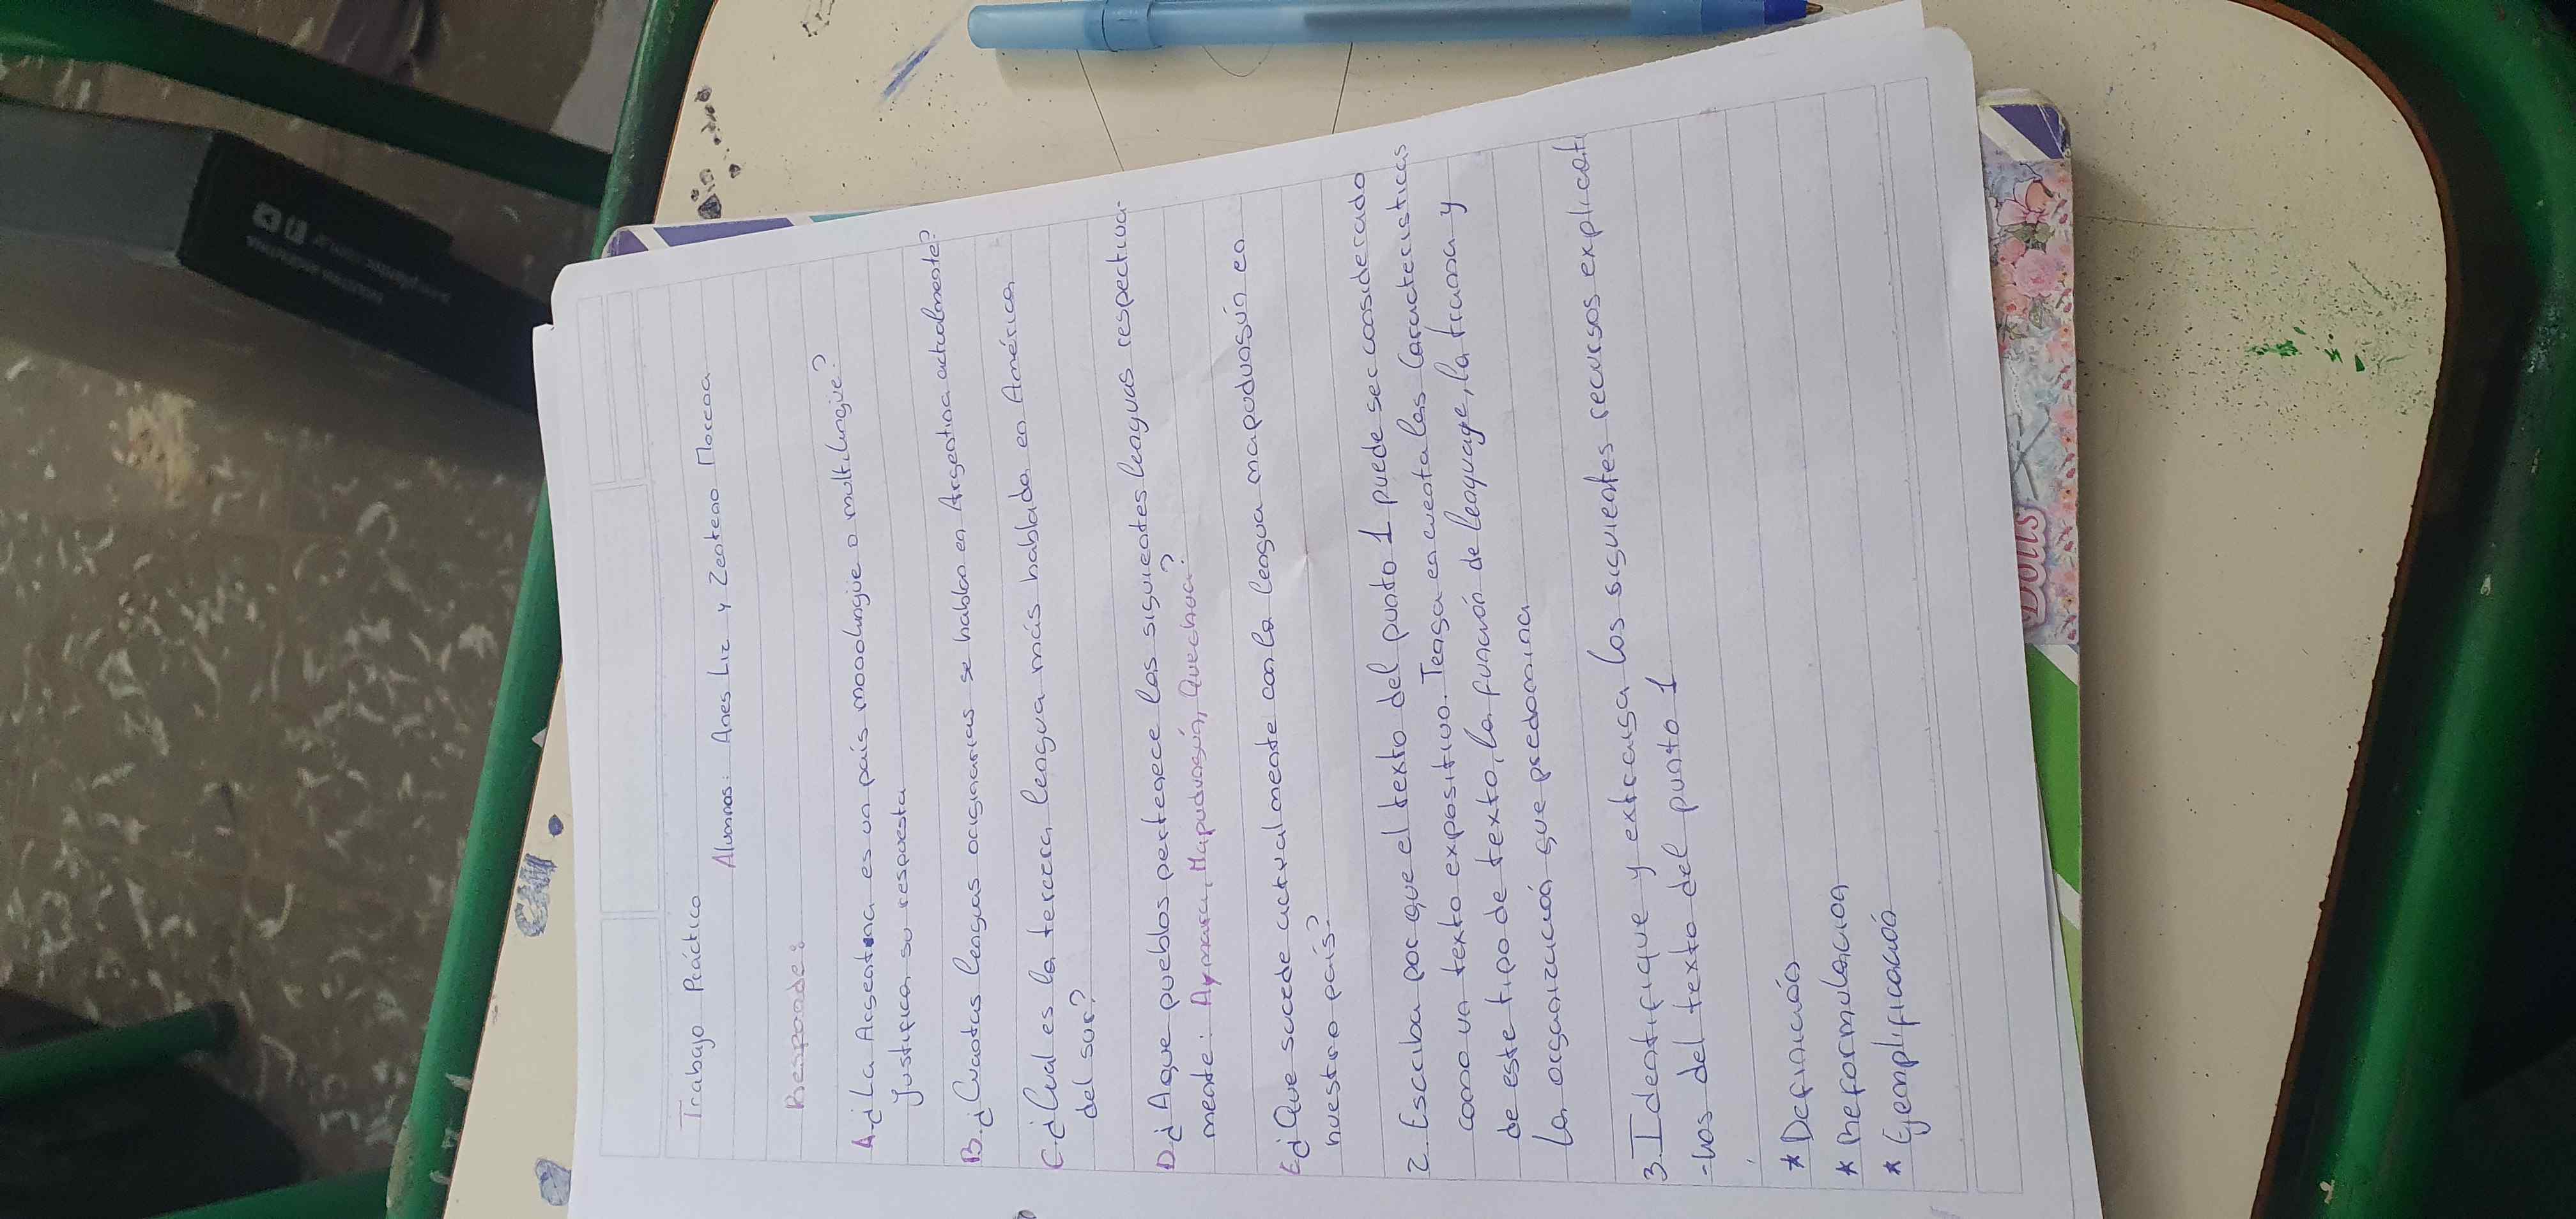 Trabajo Práctico
Alumnos: Anes Liz y Zenteno Moccoa
Responde:
A. ¿La Argentina es un país monolingüe o multilingüe?
Justificar su respuesta
B. ¿Cuantas lenguas originarias se hablan en Argentina actualmente?
C. ¿Cual es la tercera lengua más hablada en América
del sur?
D. ¿A que pueblos pertenece las siguientes lenguas respectiva-
mente: Aymara, Mapudungún, Quechua?
E. ¿Que sucede actualmente con la lengua mapudungún en
nuestro país?
2. Escriba por que el texto del punto 1 puede ser considerado
como un texto expositivo. Tenga en cuenta las Caracteristicas
de este tipo de texto, la función de lenguage, la trama y
la organización que predomina
3. Identifique y extraiga los siguientes recursos explicati
-vos del texto del punto 1
* Definición
* Reformulación
* Ejemplificación
Dolls